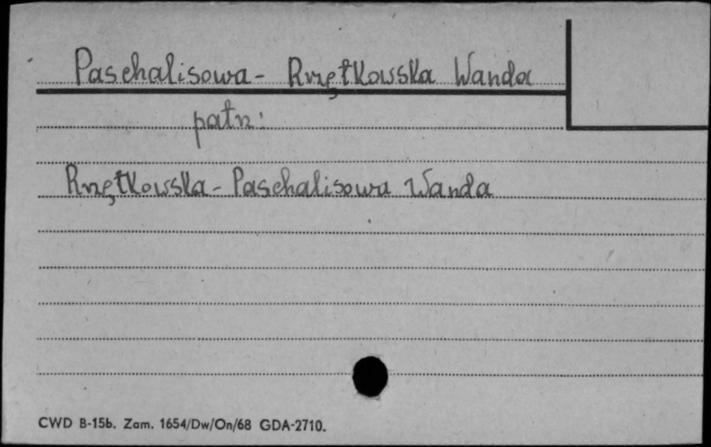 Paschalisowa - Rzętkowska Wanda
patrz:
Rzętkowska - Paschalisowa Wanda
CWD B-15b. Zam. 1654/Dw/On/68 GDA-2710.